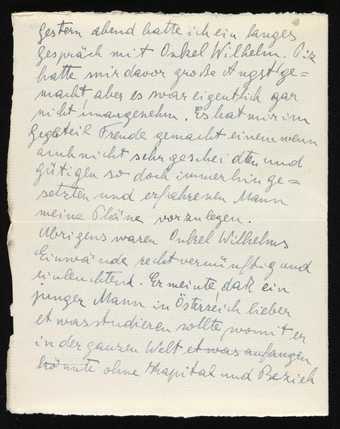 gestern abend hatte ich ein langes
gespräch mit Onkel Wilhelm. Du
hatte mir davor große Angst ge=
macht, aber es war eigentlich gar
nicht unangenehm. Es hat mir im
Gegeteil Freude gemacht einem wenn
auch nicht sehr gescheidten und
gütigen so doch immerhin ge=
setzten und erfahrenen Mann
meine Pläne vorzulegen.
Übrigens waren Onkel Wilhelms
Einwände recht vernünftig und
einleuchtend. Er meinte, daß ein
junger Mann in Österreich lieber
etwas studieren sollte, womit er
in der ganzen Welt etwas anfangen
könnte ohne Kapital und Bezieh